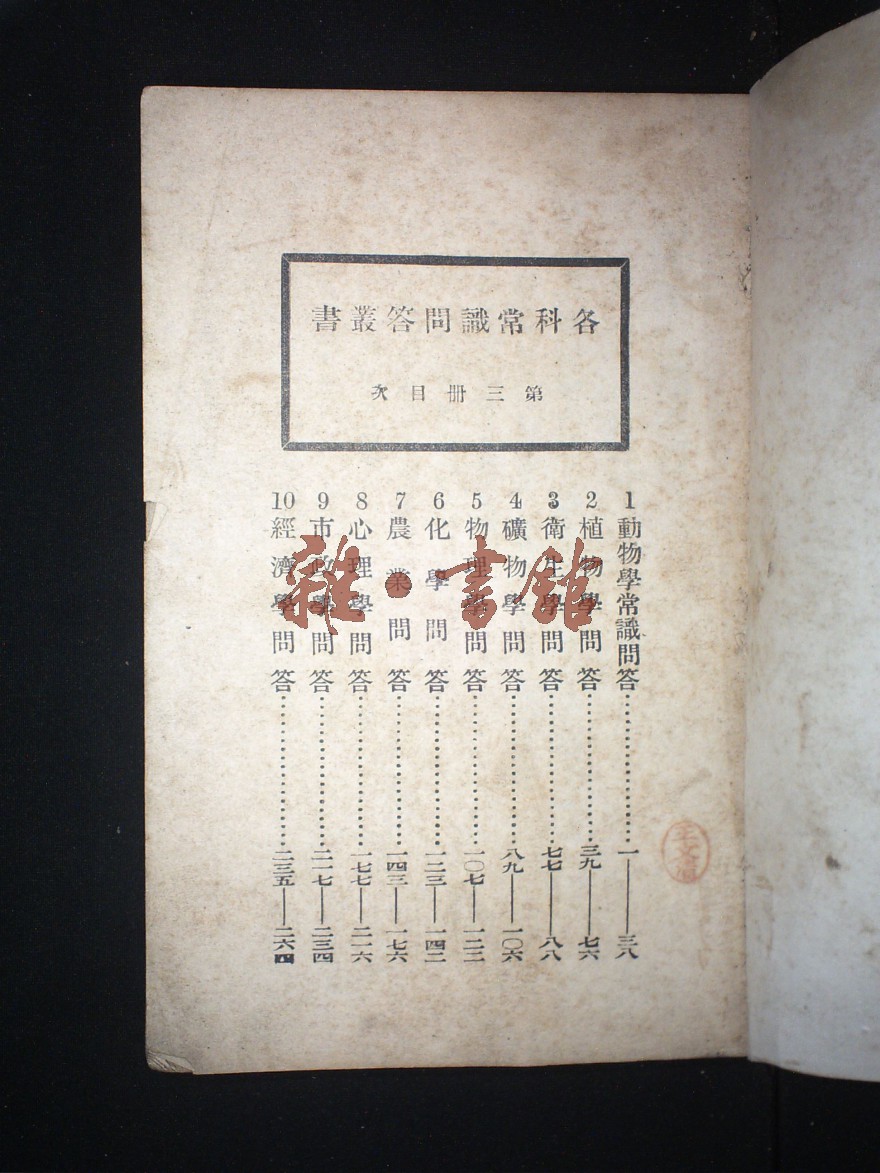 各科常識問答叢書
第三冊目次
1 動物學常識問答……………一——三八
2 植物學問答……………三九——七六
3 衛生學問答……………七七——八八
4 礦物學問答……………八九——一〇六
5 物理學問答……………一〇七——一二二
6 化學問答……………一二三——一四二
7 農業問答……………一四三——一七六
8 心理學問答……………一七七——二一六
9 市政學問答……………二一七——二三四
10 經濟學問答……………二三五——二六四
雜·書館